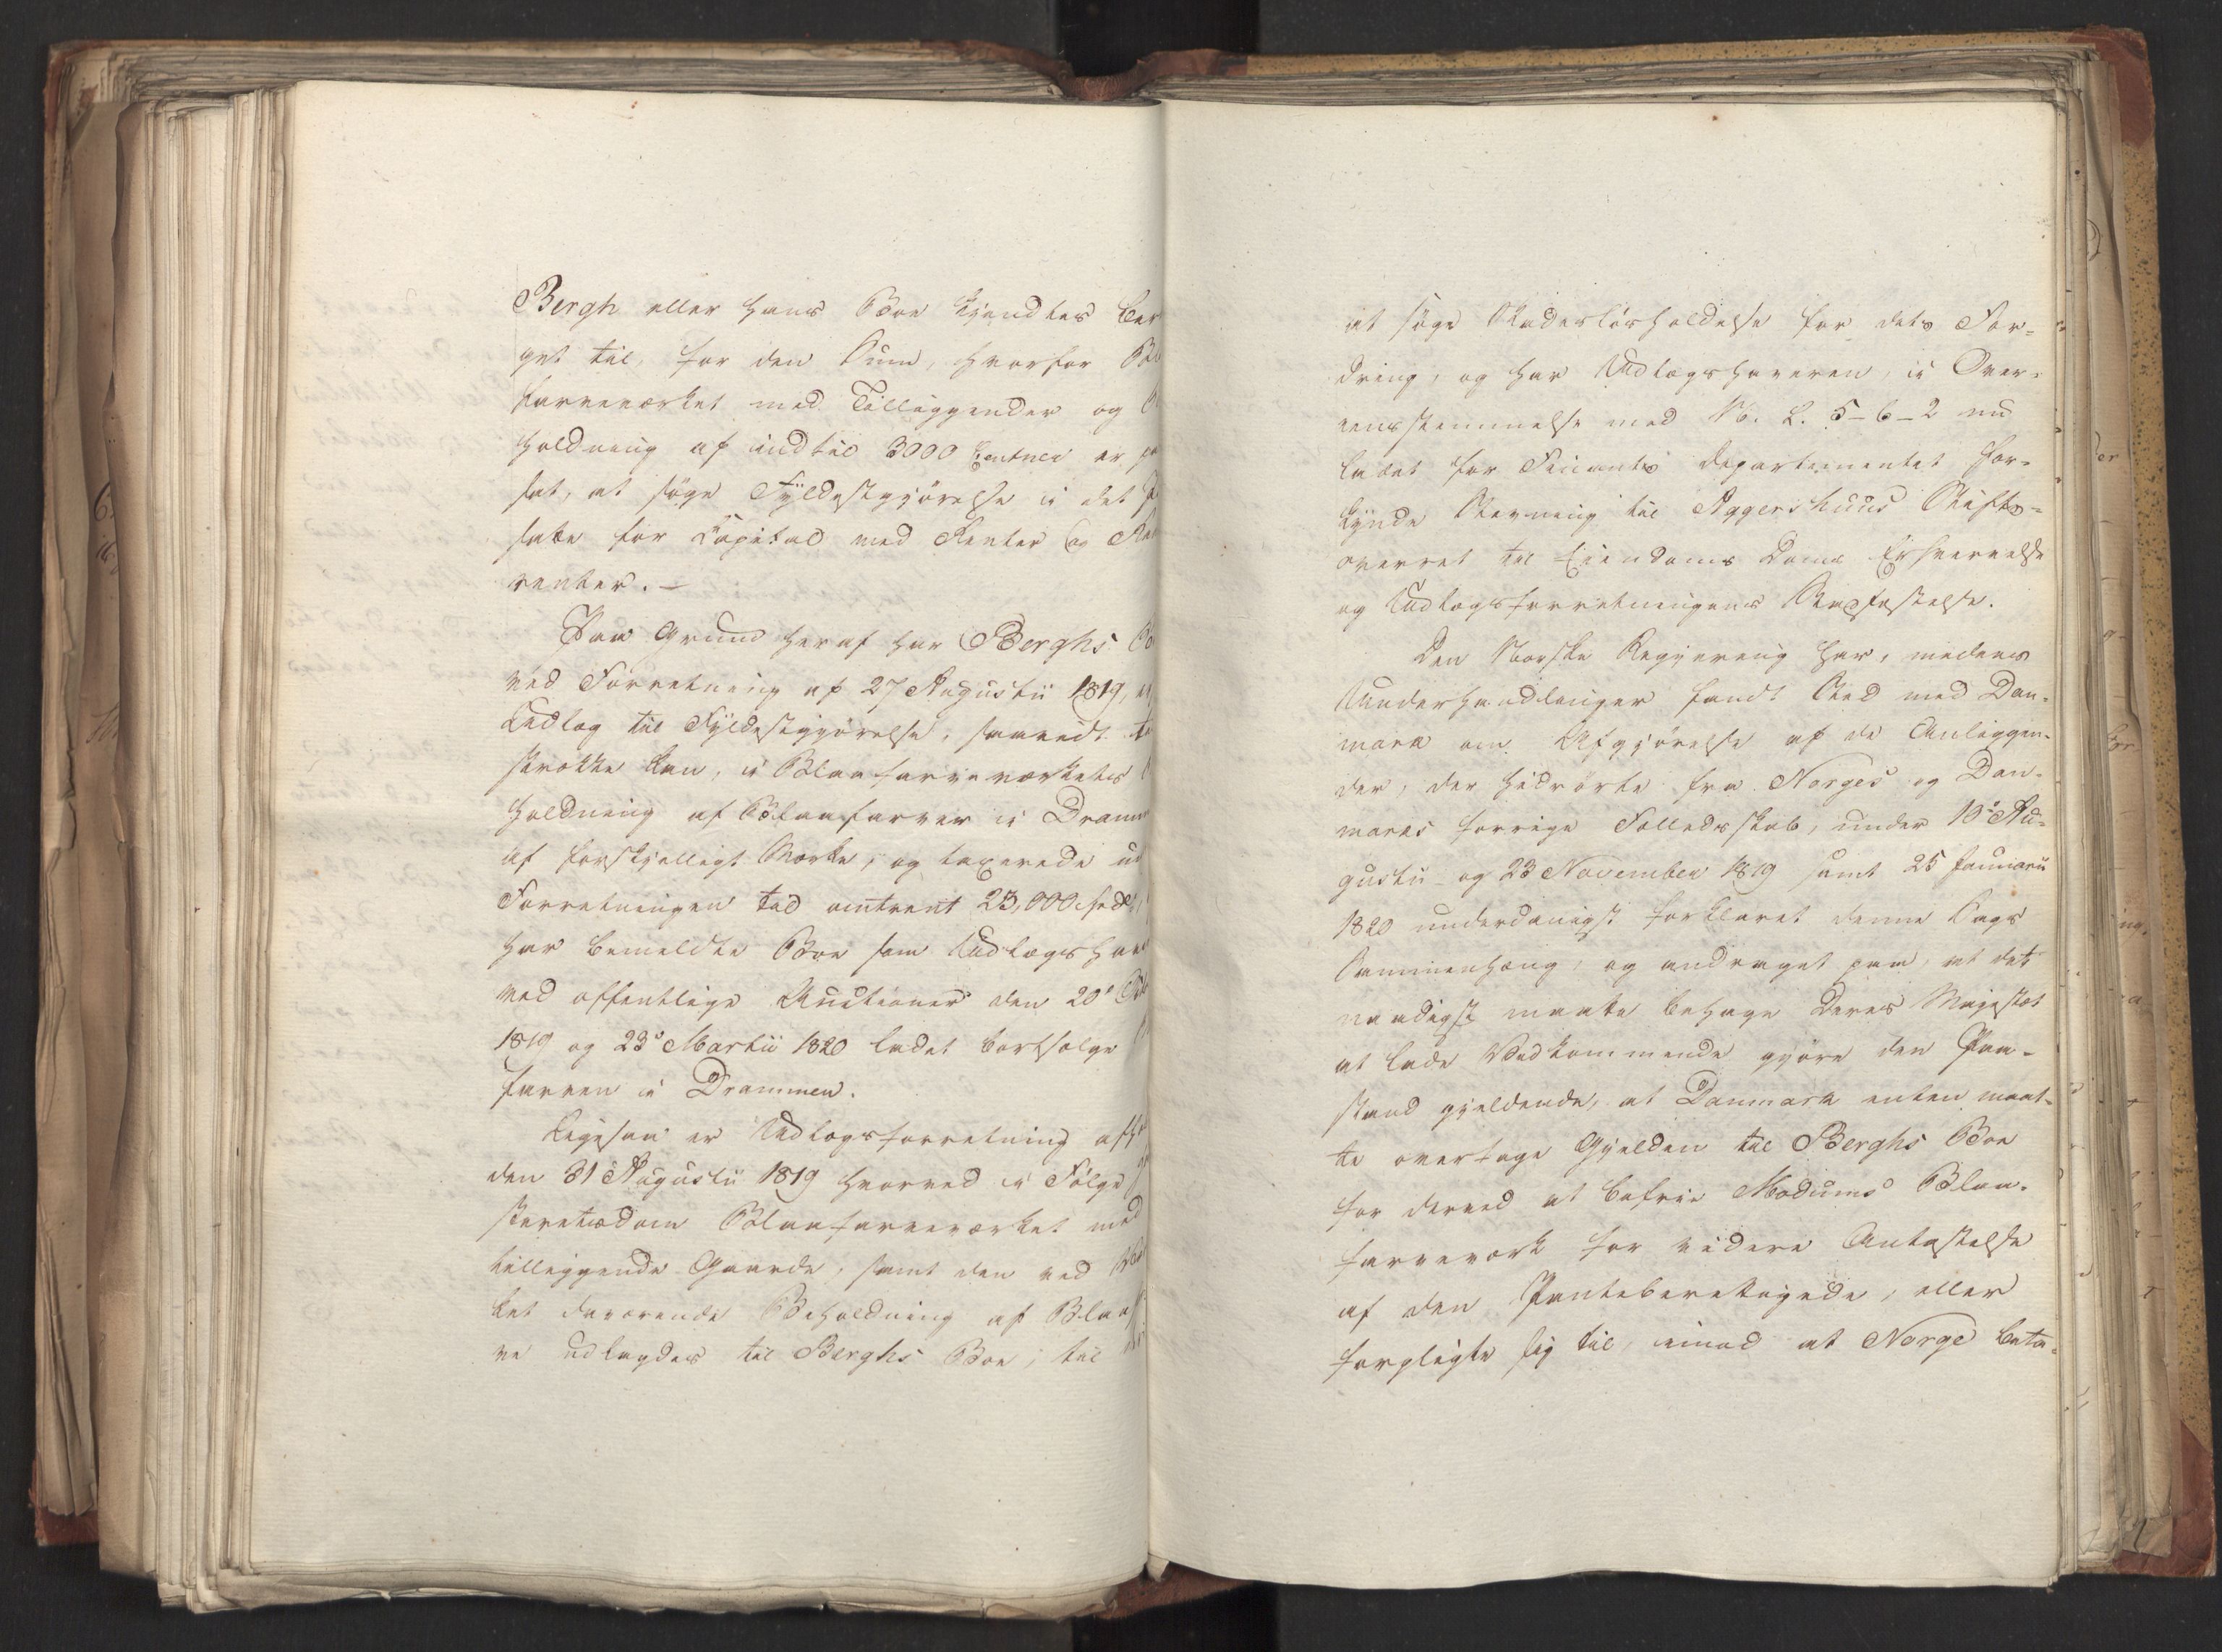 Bergh eller hans Boe kjendtes ber
get til, for den Sum, hvorfor Bl
farveværket med Tilliggender og B
holdning af indtil 3000 Centner er pa
sat, at søge Fyldestgjørelse i det P
satte for Capital med Renter og Ren
renter. —
Paa Grund heraf har Berghs Bo
ved Forretning af 27 Augustii 1819, er
Udlæg til Fyldestgjørelse, saavidt til
strække kan, i Blaafarveværkets B
holdning af Blaafarver i Dramm
af forskjelligt Mærke, og taxerede ud
Forretningen tad omtrent 23,000
har bemeldte Boe som Udlægshav
ved offentlige Auctioner den 20de
1819 og 23de Martii 1820 ladet bortsælge
farven i Drammen.
Ligesaa er Udlægsforretning afh
den 31 Augustii 1819 hvorved i Følge
steretsdom Blaafarveværket med
tilliggende Gaarde, samt den ved Vær
ket daværende Beholdning af Blaaf
ve udlagdes til Berghs Boe, til
at søge Skadesløsholdelse for dets For-
dring, og har Udlægshaveren, i Over-
eensstemmelse med N. L. 5-6-2 nu
ladet for Finants Departementet for-
kynde Stevning til Aggershuus Stifts-
overret til Eiendoms Doms Erhvervelse
og Udlægsforretningens Stadfæstelse.
Den Norske Regjering har, medens
Underhandlinger fandt Sted med Dan-
mark om Afgjørelse af de Anliggen-
der, der hidrørte fra Norges og Dan-
marks forrige Fælledsskab, under 10de Au-
gustii og 23 November 1819 samt 25 Januarii
1820 underdanigst forklaret denne Sags
Sammenhæng, og andraget paa, at det
naadigst maatte behage Deres Majestæt
at lade Vedkommende gjøre den Paa-
stand gjeldende, at Danmark enten maat-
te overtage Gjelden til Berghs Boe
for derved at befrie Modums Blaa-
farveværk for videre Antastelse
af den Panteberettigede, eller
forpligte sig til, imod at Norge beta-